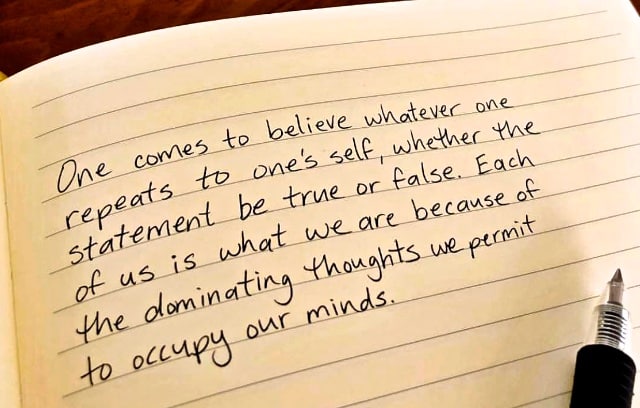 One comes to believe whatever one
repeats to one's self, whether the
statement be true or false. Each
of us is what we are because of
the dominating thoughts we permit
to occupy our minds.